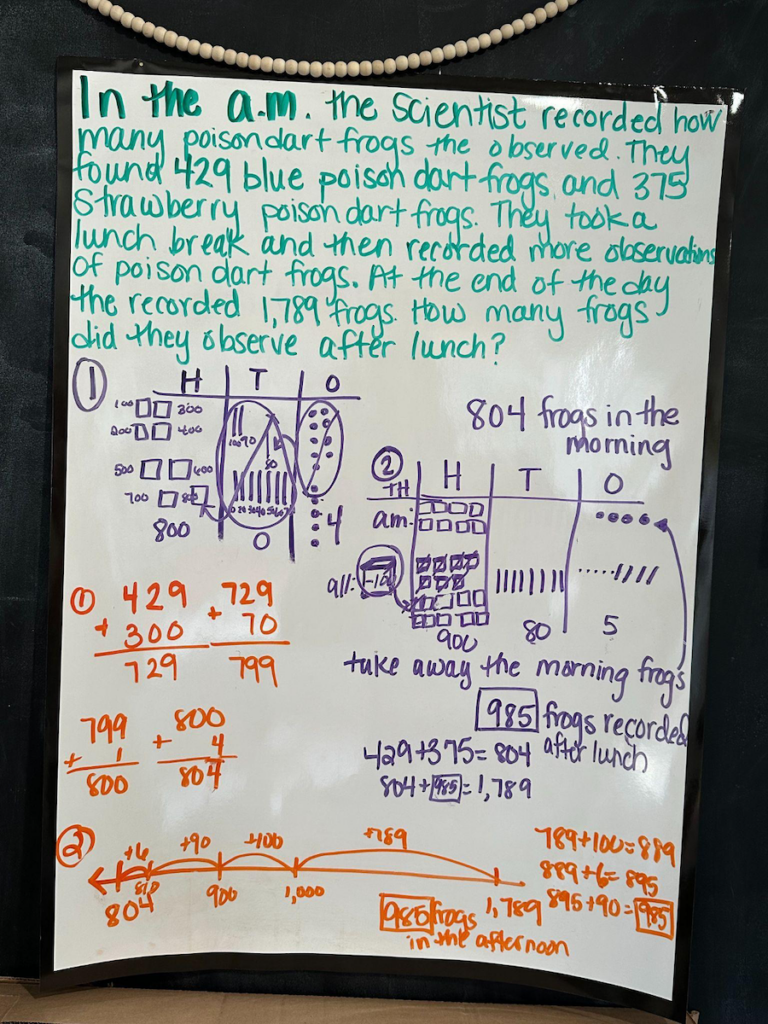 In the a.m. the scientist recorded how
many poison dart frogs the observed. They
found 429 blue poison dart frogs and 375
Strawberry poison dart frogs. They took a
lunch break and then recorded more observations
of poison dart frogs. At the end of the day
the recorded 1,789 frogs. How many frogs
did they observe after lunch?
1
H T O
100 300
200 400
500 600
700 800
800
0
4
804 frogs in the
morning
2
TH H T O
am:
all:
900 80 5
take away the morning frogs
985 frogs recorded
after lunch
429+375=804
804+985=1,789
1
429
+ 300
729
729
+ 70
799
799
+ 1
800
800
+ 4
804
2
+6 +90 +100 +789
804 810 900 1,000 1,789
985 frogs
in the afternoon
789+100=889
889+6=895
895+90=985